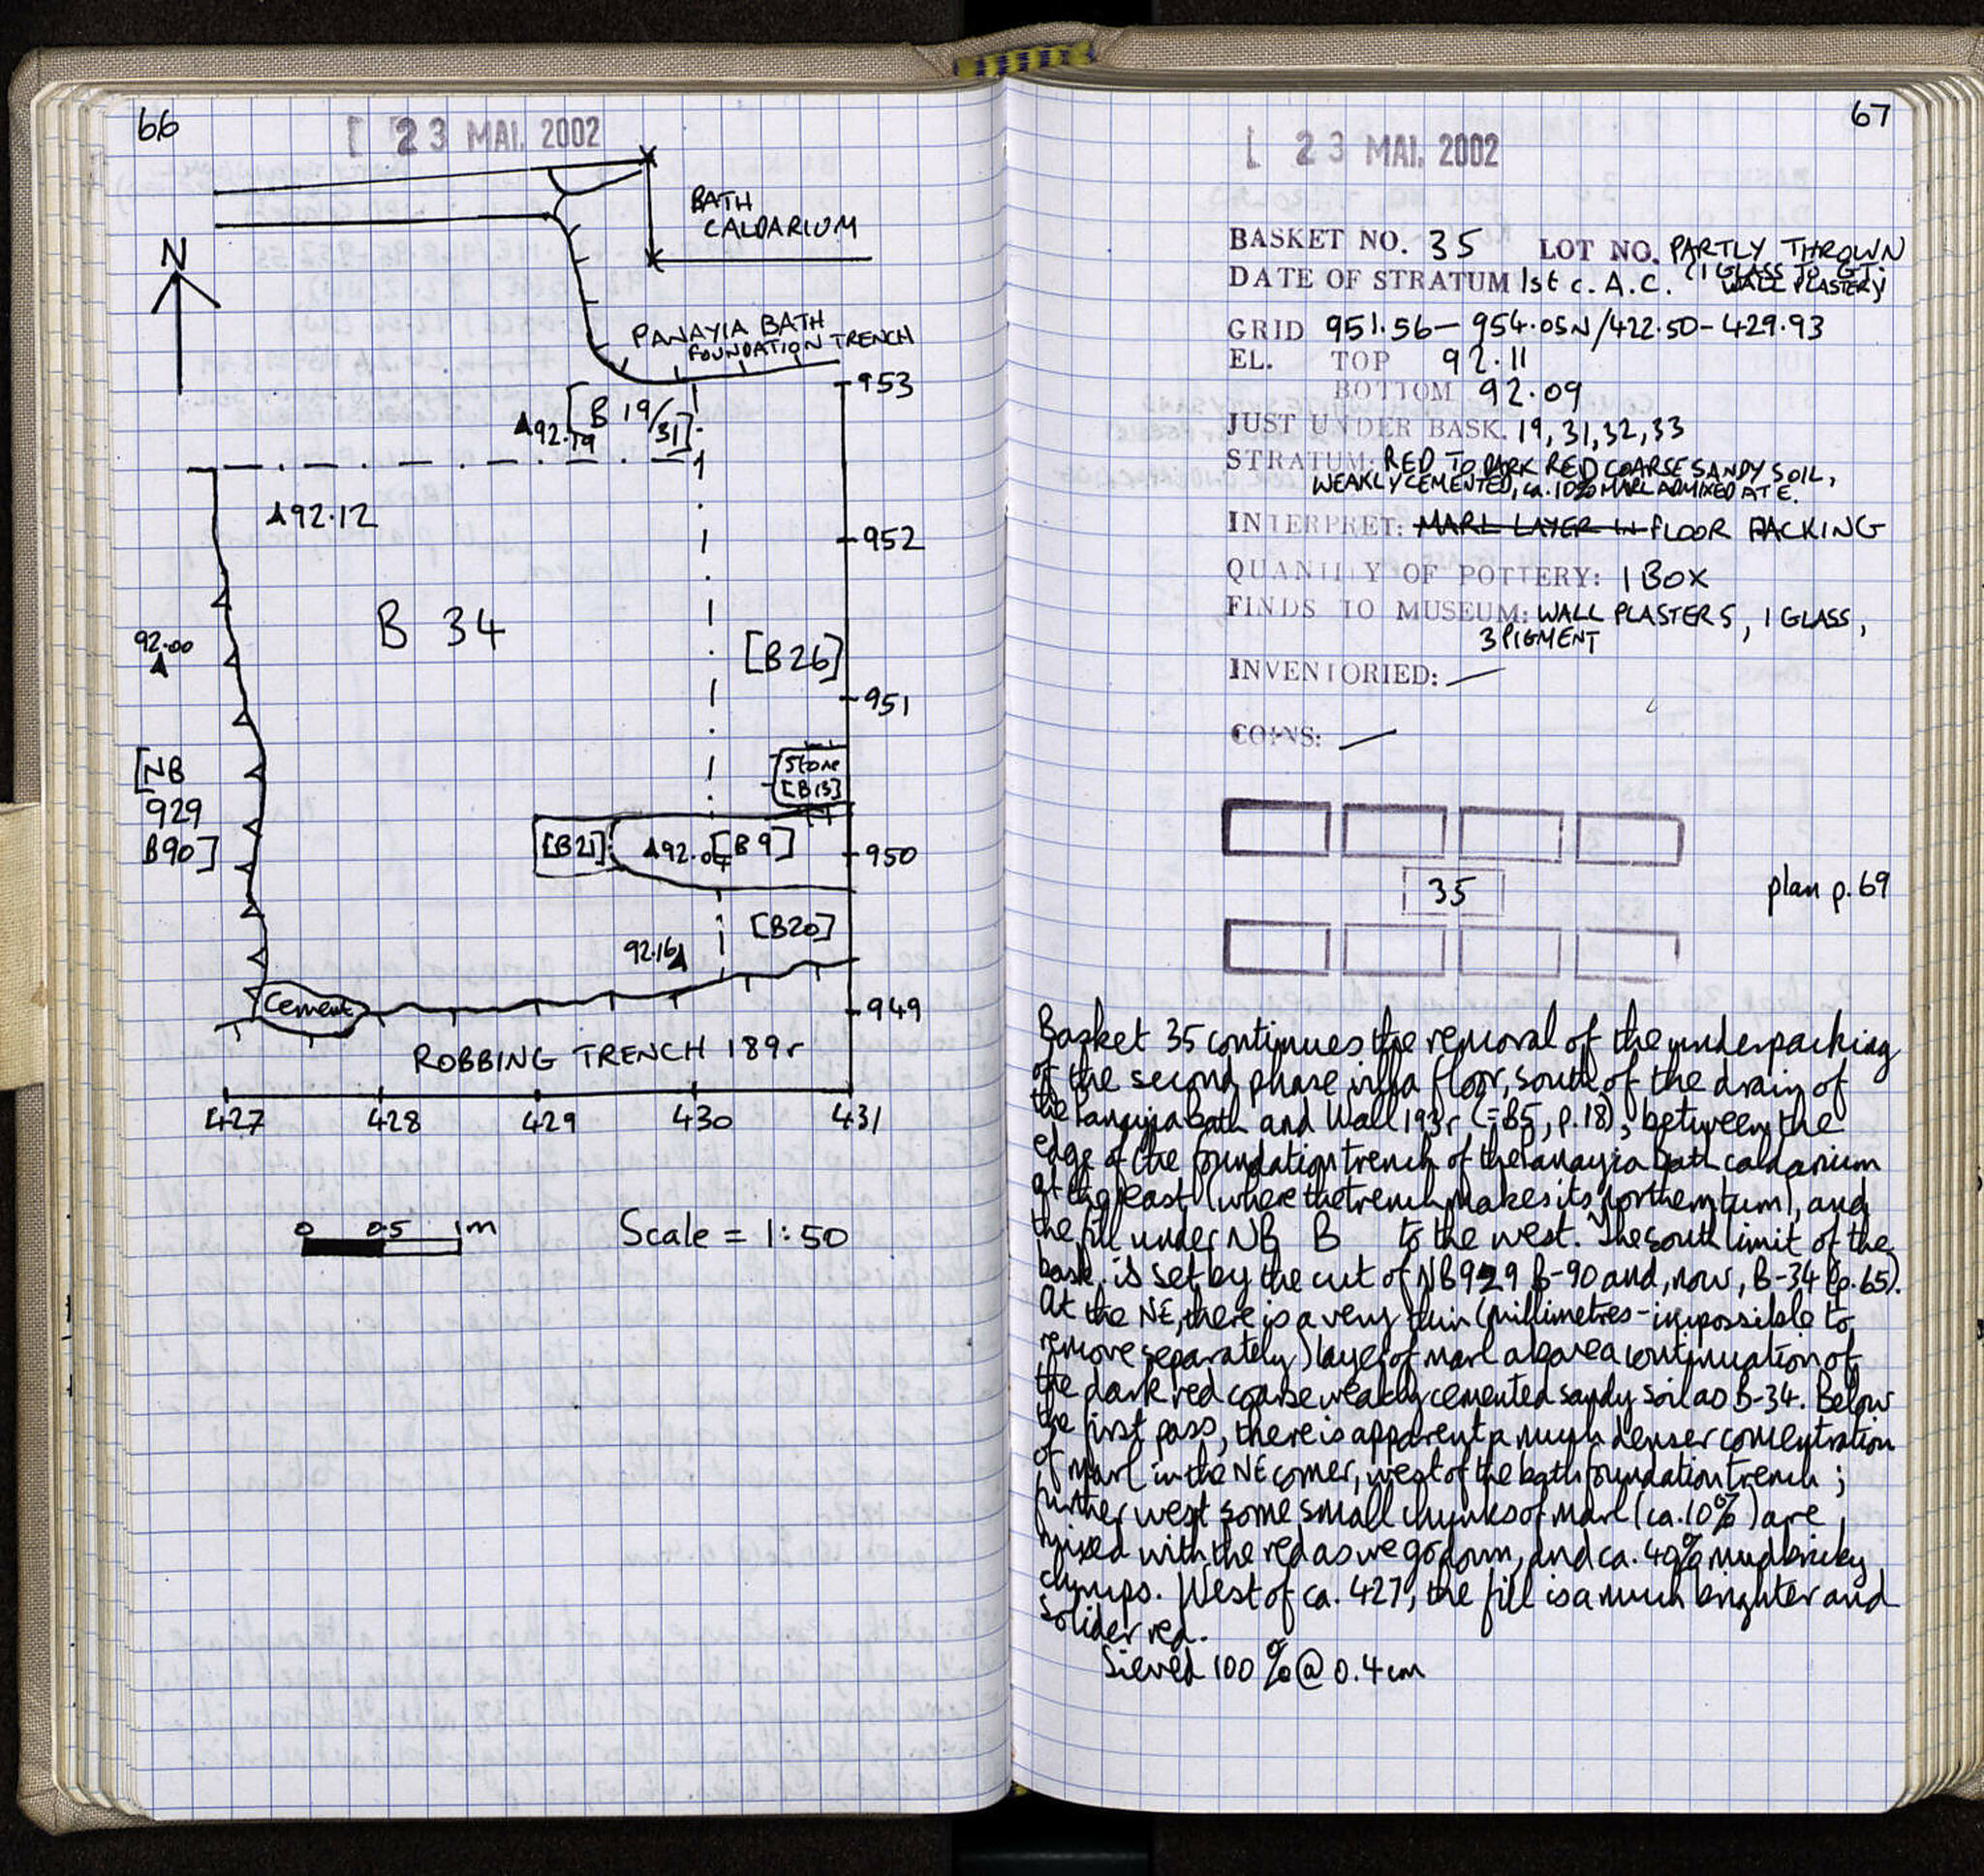 66
23 MAI. 2002
BATH
CALDARIUM
N
PANAYIA BATH
FOUNDATION TRENCH
953
[B 19/31]
92.19
92.12
952
B 34
92.00
[B26]
951
[NB
929
B90]
Stone
[B13]
[B21]
[B9]
950
[B20]
92.16
Cement
949
ROBBING TRENCH 189r
427 428 429 430 431
0 0.5 1m
Scale = 1:50
67
23 MAI. 2002
BASKET NO. 35 LOT NO. PARTLY THROWN
(1 GLASS TO GT.
DATE OF STRATUM 1st c. A.C. WALL PLASTER)
GRID 951.56 - 954.05N/422.50-429.93
EL. TOP 92.11
BOTTOM 92.09
JUST UNDER BASK. 19, 31, 32, 33
STRATUM: RED TO DARK RED COARSE SANDY SOIL,
WEAKLY CEMENTED, ca. 10% MARL ADMIXED AT E.
INTERPRET: MARL LAYER IN FLOOR PACKING
QUANTITY OF POTTERY: 1 BOX
FINDS TO MUSEUM: WALL PLASTERS, 1 GLASS,
3 PIGMENT
INVENTORIED: —
COINS: —
35
plan p. 69
Basket 35 continues the removal of the underpacking
of the second phase villa floor, south of the drain of
the Panayia Bath and Wall 193r (=B5, p.18), between the
edge of the foundation trench of the Panayia bath caldarium
at the east (where the trench makes its northern turn), and
the fill under NB B to the west. The south limit of the
bask. is set by the cut of NB929 B-90 and, now, B-34 (p.65).
At the NE, there is a very thin (millimetres - impossible to
remove separately) layer of marl above a continuation of
the dark red coarse weakly cemented sandy soil as B-34. Below
the first pass, there is apparent a much denser concentration
of marl in the NE corner, west of the bath foundation trench;
further west some small chunks of marl (ca. 10%) are
mixed with the red as we go down, and ca. 40% mudbricky
clumps. West of ca. 427, the fill is a much brighter and
solider red.
Sieved 100% @ 0.4cm